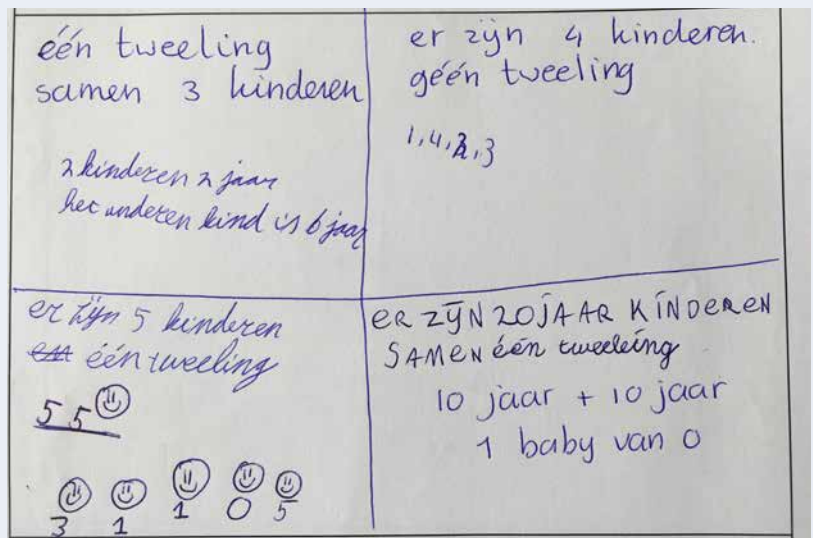 één tweeling
samen 3 kinderen
2 kinderen 2 jaar
het anderen kind is 6 jaar
er zijn 4 kinderen.
géén tweeling
1, 4, 2, 3
er zijn 5 kinderen
één tweeling
5 5
3 1 1 0 5
ER ZIJN 20 JAAR KINDEREN
SAMEN één tweeleing
10 jaar + 10 jaar
1 baby van 0